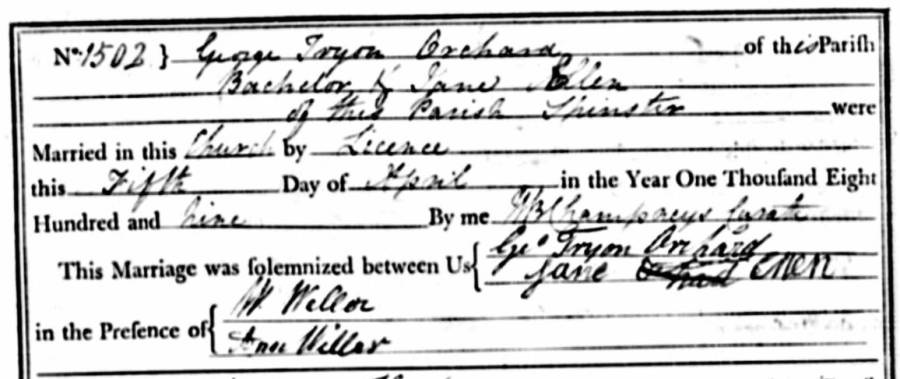 No. 1502 } George Tryon Orchard of this Parish
Bachelor & Jane Allen
of this Parish Spinster were
Married in this Church by Licence
this Fifth Day of April in the Year One Thousand Eight
Hundred and nine By me Champneys Curate
This Marriage was solemnized between Us { Geo Tryon Orchard
Jane Orchard Allen
in the Presence of { W Weller
Ann Weller